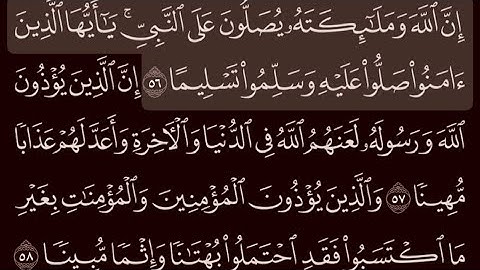 إِنَّ ٱللَّهَ وَمَلَٰٓئِكَتَهُۥ يُصَلُّونَ عَلَى ٱلنَّبِىِّ ۚ يَٰٓأَيُّهَا ٱلَّذِينَ
ءَامَنُوا۟ صَلُّوا۟ عَلَيْهِ وَسَلِّمُوا۟ تَسْلِيمًا ٥٦ إِنَّ ٱلَّذِينَ يُؤْذُونَ
ٱللَّهَ وَرَسُولَهُۥ لَعَنَهُمُ ٱللَّهُ فِى ٱلدُّنْيَا وَٱلْءَاخِرَةِ وَأَعَدَّ لَهُمْ عَذَابًا
مُّهِينًا ٥٧ وَٱلَّذِينَ يُؤْذُونَ ٱلْمُؤْمِنِينَ وَٱلْمُؤْمِنَٰتِ بِغَيْرِ
مَا ٱكْتَسَبُوا۟ فَقَدِ ٱحْتَمَلُوا۟ بُهْتَٰنًا وَإِثْمًا مُّبِينًا ٥٨